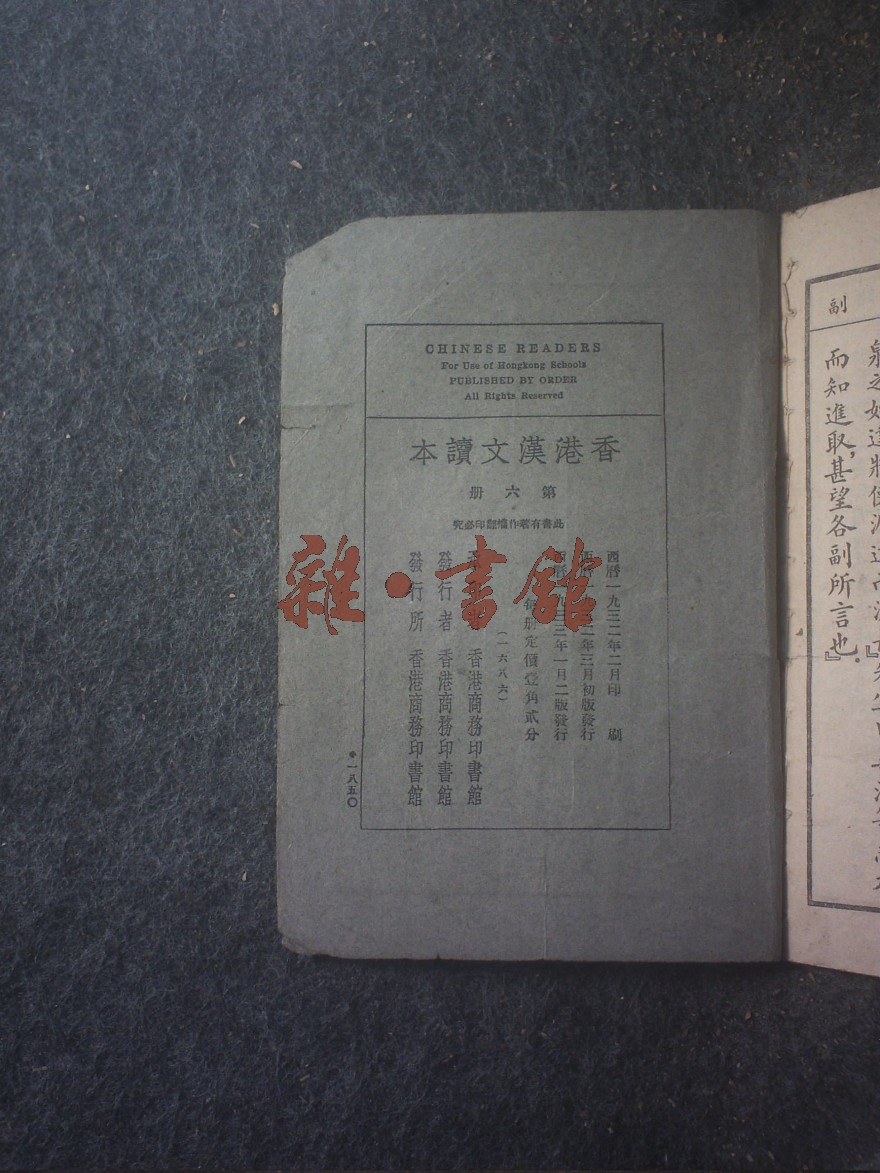 CHINESE READERS
For Use of Hongkong Schools
PUBLISHED BY ORDER
All Rights Reserved
香港漢文讀本
第六册
此書有著作權翻印必究
西曆一九三二年二月印刷
西曆一九三二年三月初版發行
西曆一九三三年一月二版發行
每册定價壹角貳分
(一六八六)
香港商務印書館
發行者 香港商務印書館
發行所 香港商務印書館
一八五〇
雜·書館
副
而知進取,甚望各副所言也.』